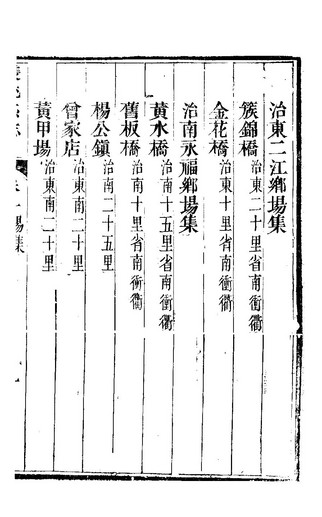 治東二江鄉場集
簇錦橋 治東二十里省南衝衢
金花橋 治東十里省南衝衢
治南永福鄉場集
黃水橋 治南十五里省南衝衢
舊板橋 治南十里省南衝衢
楊公鎮 治南二十五里
曾家店 治東南二十里
黃甲場 治東南二十里
場集